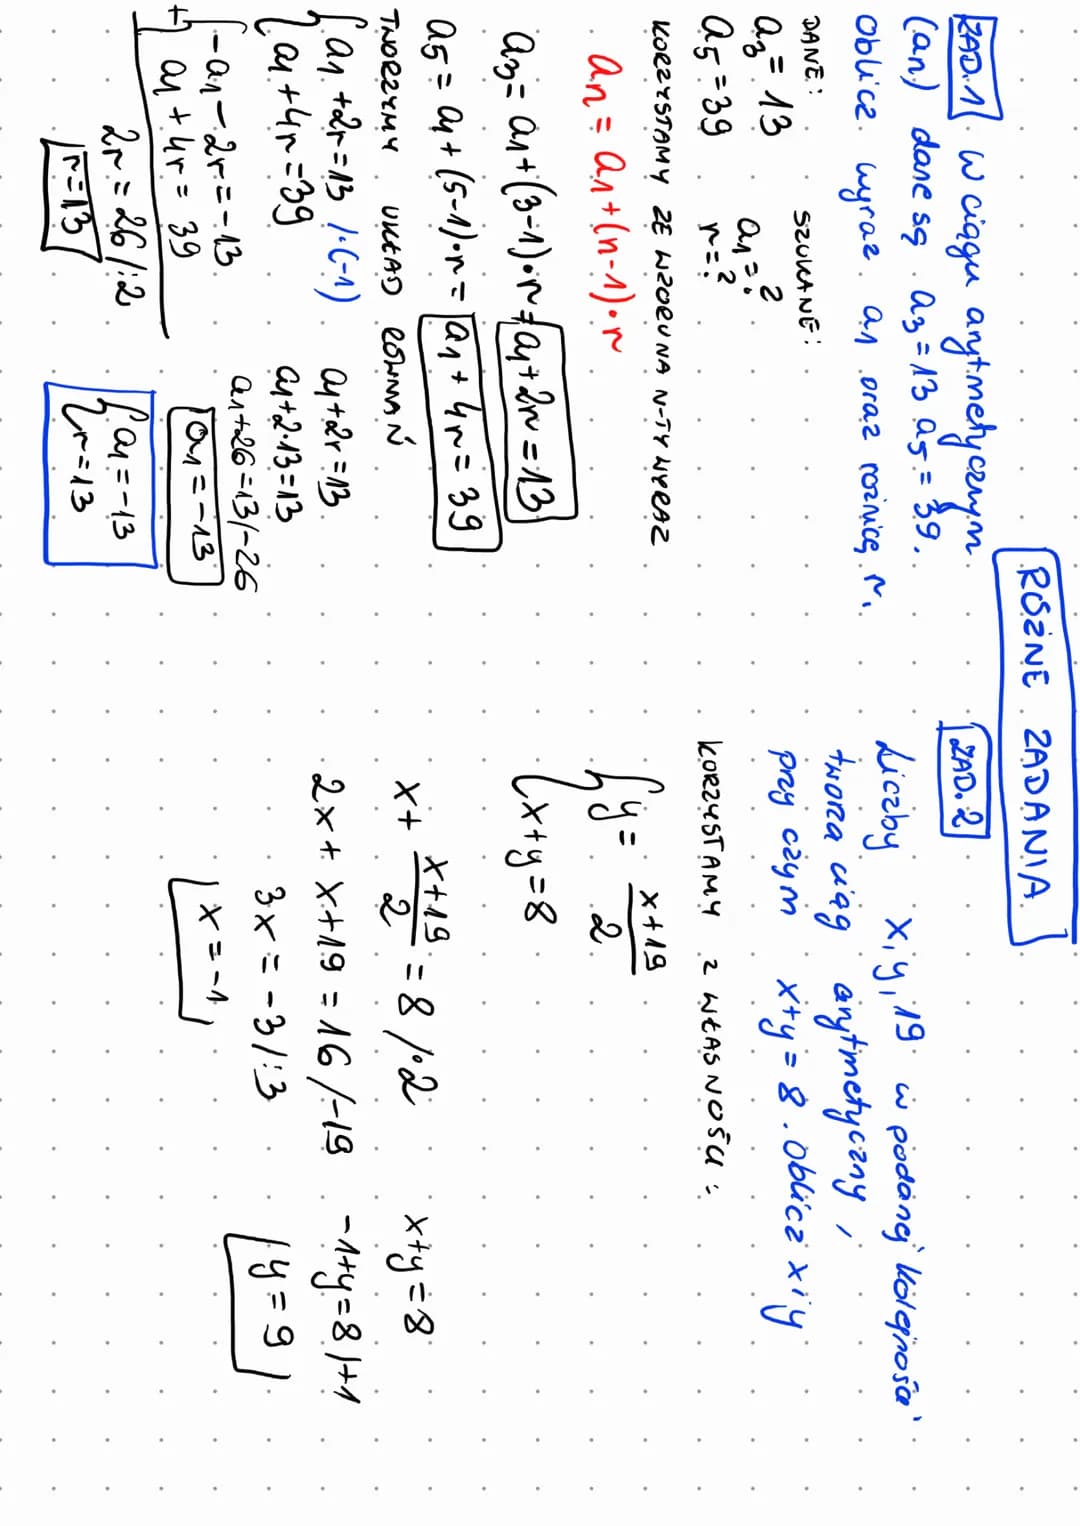 RÓŻNE ZADANIA
ZAD.1 W ciągu arytmetycznym
(an) dane są a₃=13 a₅=39.
Oblicz wyraz a₁ oraz różnicę r.
DANE: SZUKANE:
a₃=13 a₁=?
a₅=39 r=?
KORZYSTAMY ZE WZORU NA N-TY WYRAZ
an=a₁+(n-1)·r
a₃=a₁+(3-1)·r=a₁+2r=13
a₅=a₁+(5-1)·r=a₁+4r=39
TWORZYMY UKŁAD RÓWNAŃ
{a₁+2r=13 /·(-1)
{a₁+4r=39
+{-a₁-2r=-13
a₁+4r=39
2r=26/:2
r=13
a₁+2r=13
a₁+2·13=13
a₁+26=13/-26
a₁=-13
{a₁=-13
{r=13
ZAD.2
Liczby x,y,19 w podanej kolejności
tworzą ciąg arytmetyczny,
przy czym x+y=8. Oblicz x i y
KORZYSTAMY Z WŁASNOŚCI:
{y=\frac{x+19}{2}
{x+y=8
x+\frac{x+19}{2}=8/·2
2x+x+19=16/-19
3x=-3/:3
x=-1
x+y=8
-1+y=8/+1
y=9